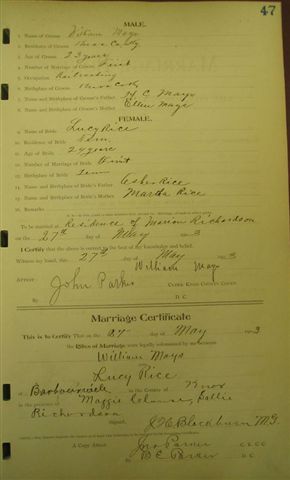 47
MALE.
1. Name of Groom William Mays
2. Residence of Groom Knox Co Ky
3. Age of Groom 23 years
4. Number of Marriage of Groom First
5. Occupation Railroading
6. Birthplace of Groom Knox Co Ky
7. Name and Birthplace of Groom's Father H C Mays
8. Name and Birthplace of Groom's Mother Ellen Mays
FEMALE.
9. Name of Bride Lucy Rice
10. Residence of Bride
11. Age of Bride 24 years
12. Number of Marriage of Bride First
13. Birthplace of Bride
14. Name and Birthplace of Bride's Father Rice
15. Name and Birthplace of Bride's Mother Martha Rice
16. Remarks
To be married at Residence of Marion Richardson
on the 27th day of May 3
I Certify that the above is correct to the best of my knowledge and belief.
Witness my hand, this 27th day of May 3
William Mays
Attest: John Parker CLERK KNOX COUNTY COURT
By D. C.
Marriage Certificate
This is to Certify That on the 27 day of May 3
the Rites of Marriage were legally solemnized by me between
William Mays
Lucy Rice
at Barbourville in the County of Knox
in the presence of Maggie
Richardson
Signed, Blackburn M.G.
A Copy Attest: Jno Parker
By Parker